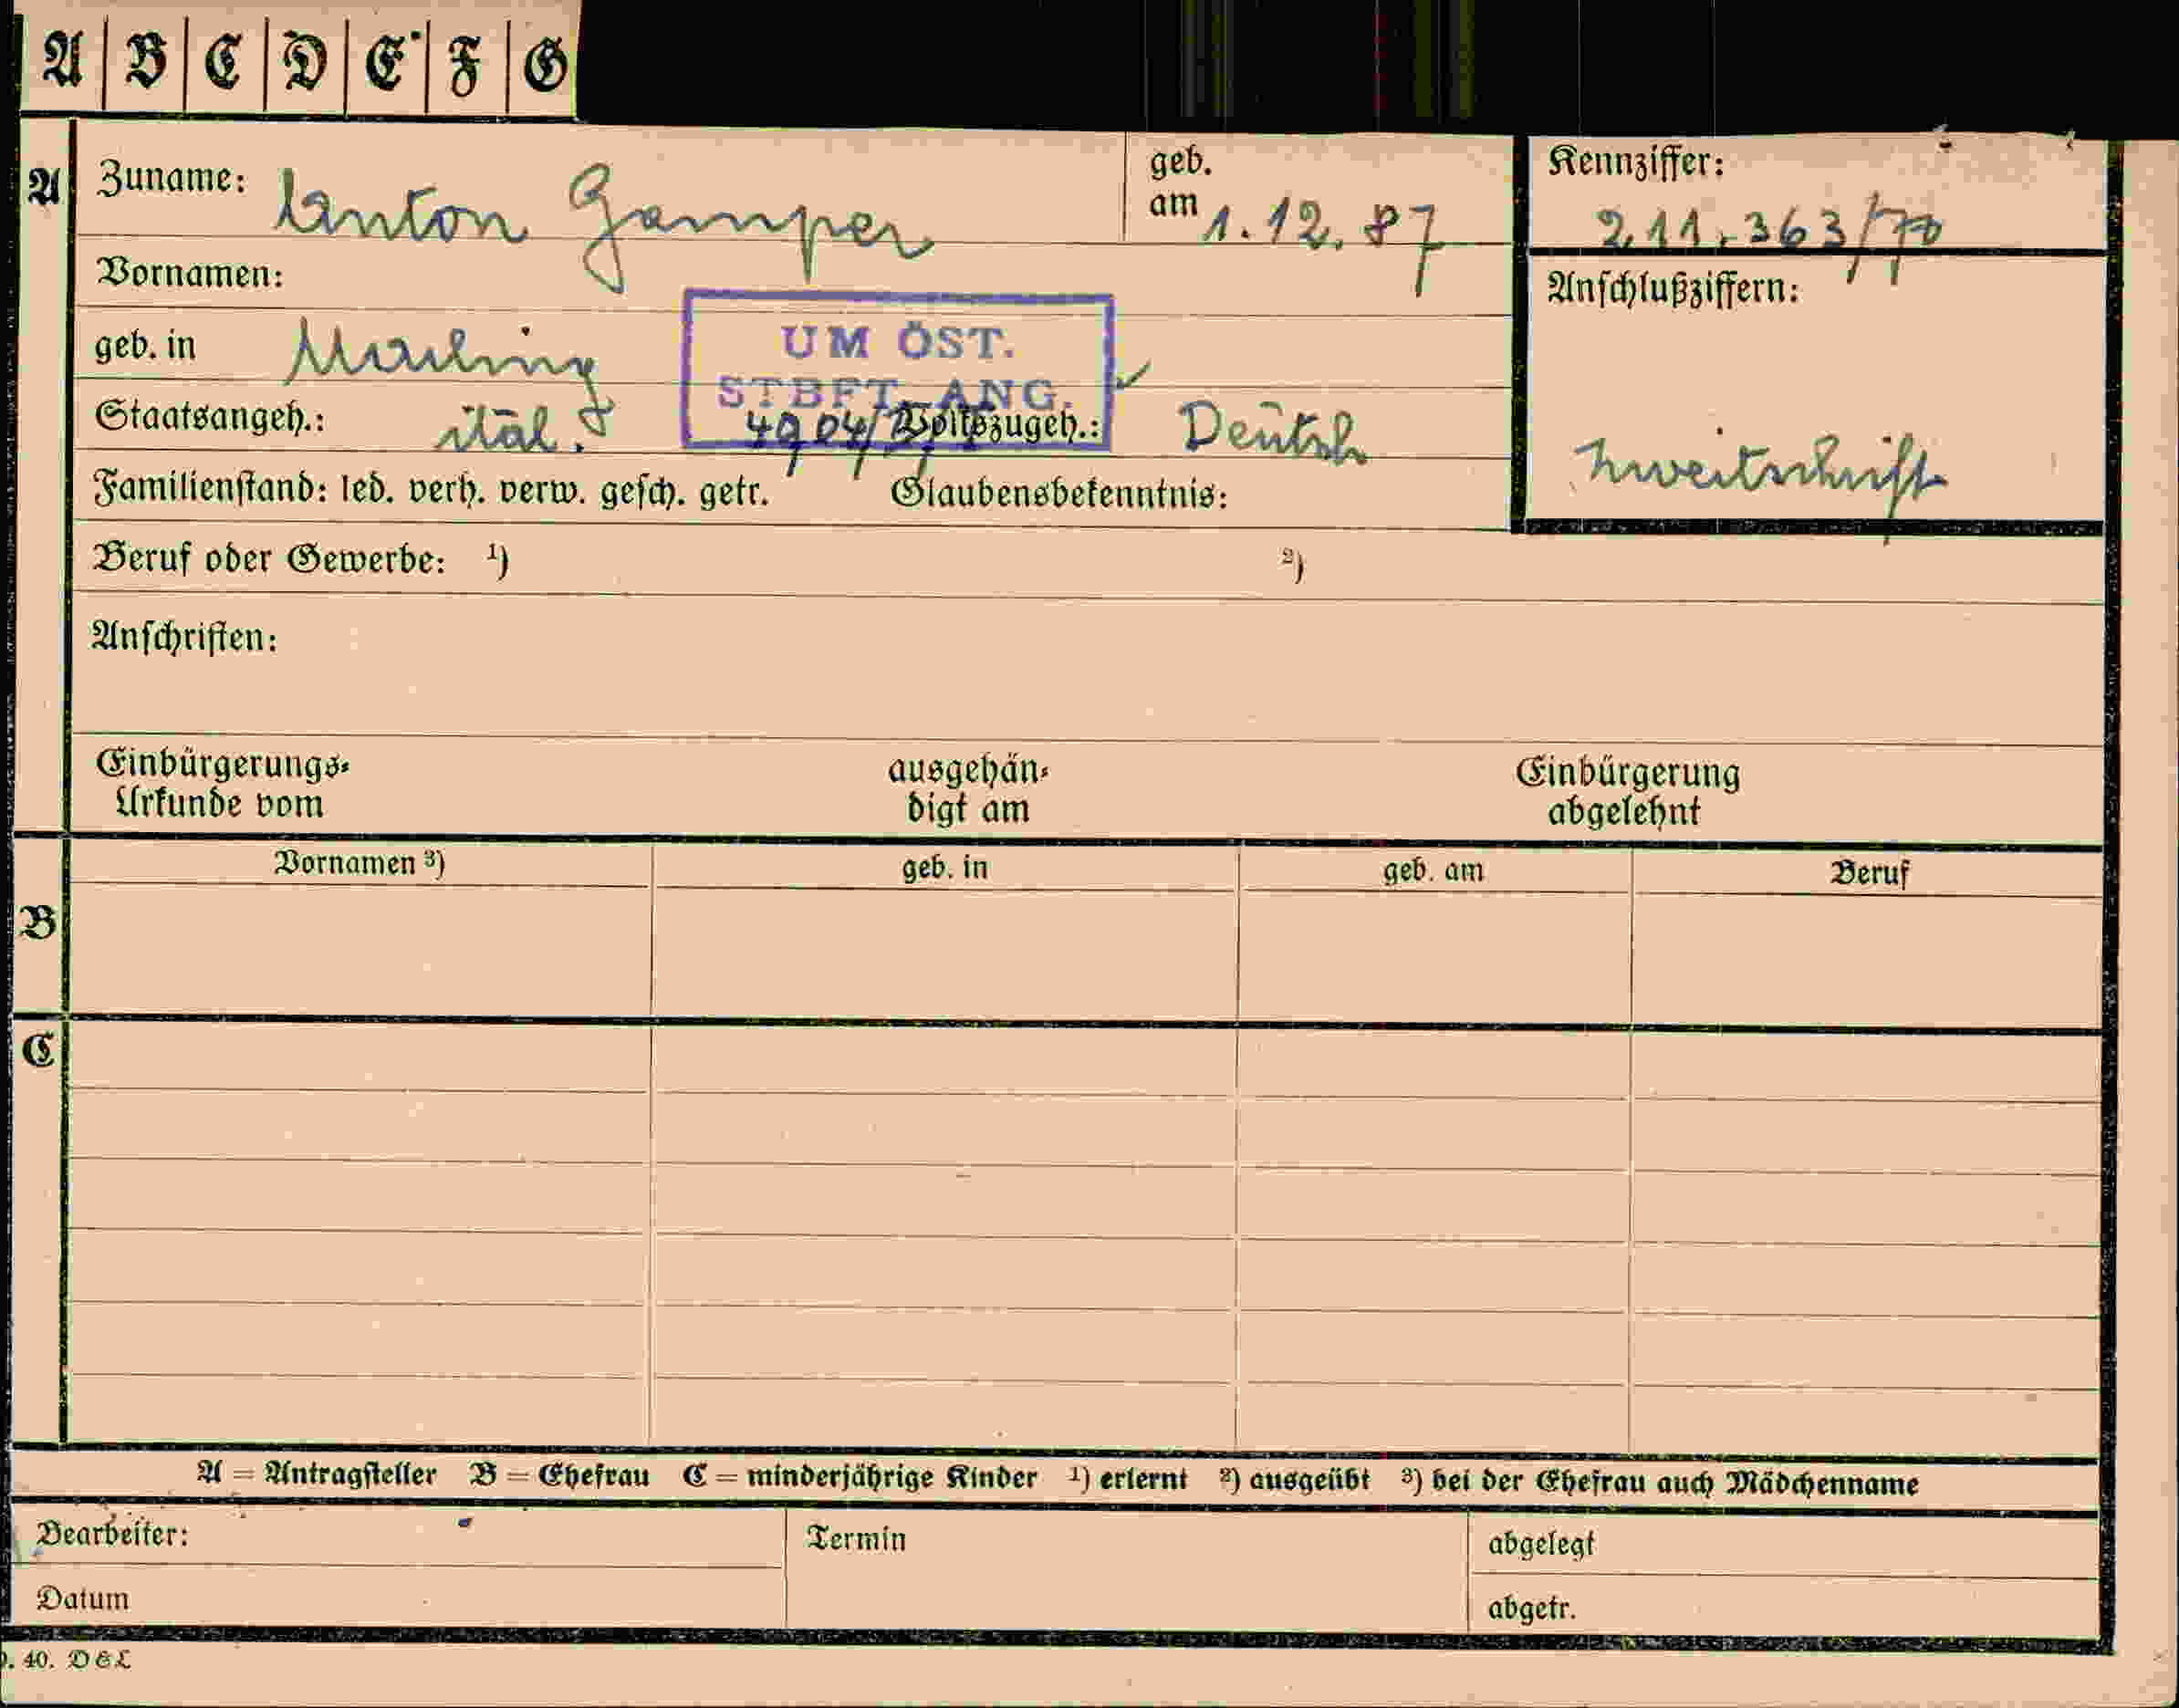 A B C D E F G
A
Zuname: Anton Gamper
geb. am 1.12.87
Kennziffer: 211.363/70
Vornamen:
Anschlußziffern:
geb. in Marling
UM ÖST.
STBFT. ANG.
Staatsangeh.: ital.
4904/
Volkszugeh.: Deutsch
Zweitschrift
Familienstand: led. verh. verw. gesch. getr. Glaubensbekenntnis:
Beruf oder Gewerbe: ¹) ²)
Anschriften:
Einbürgerungs- ausgehän- Einbürgerung
Urkunde vom digt am abgelehnt
Vornamen ³) geb. in geb. am Beruf
B
C
A = Antragsteller B = Ehefrau C = minderjährige Kinder ¹) erlernt ²) ausgeübt ³) bei der Ehefrau auch Mädchenname
Bearbeiter: Termin abgelegt
Datum abgetr.
. 40. DEL